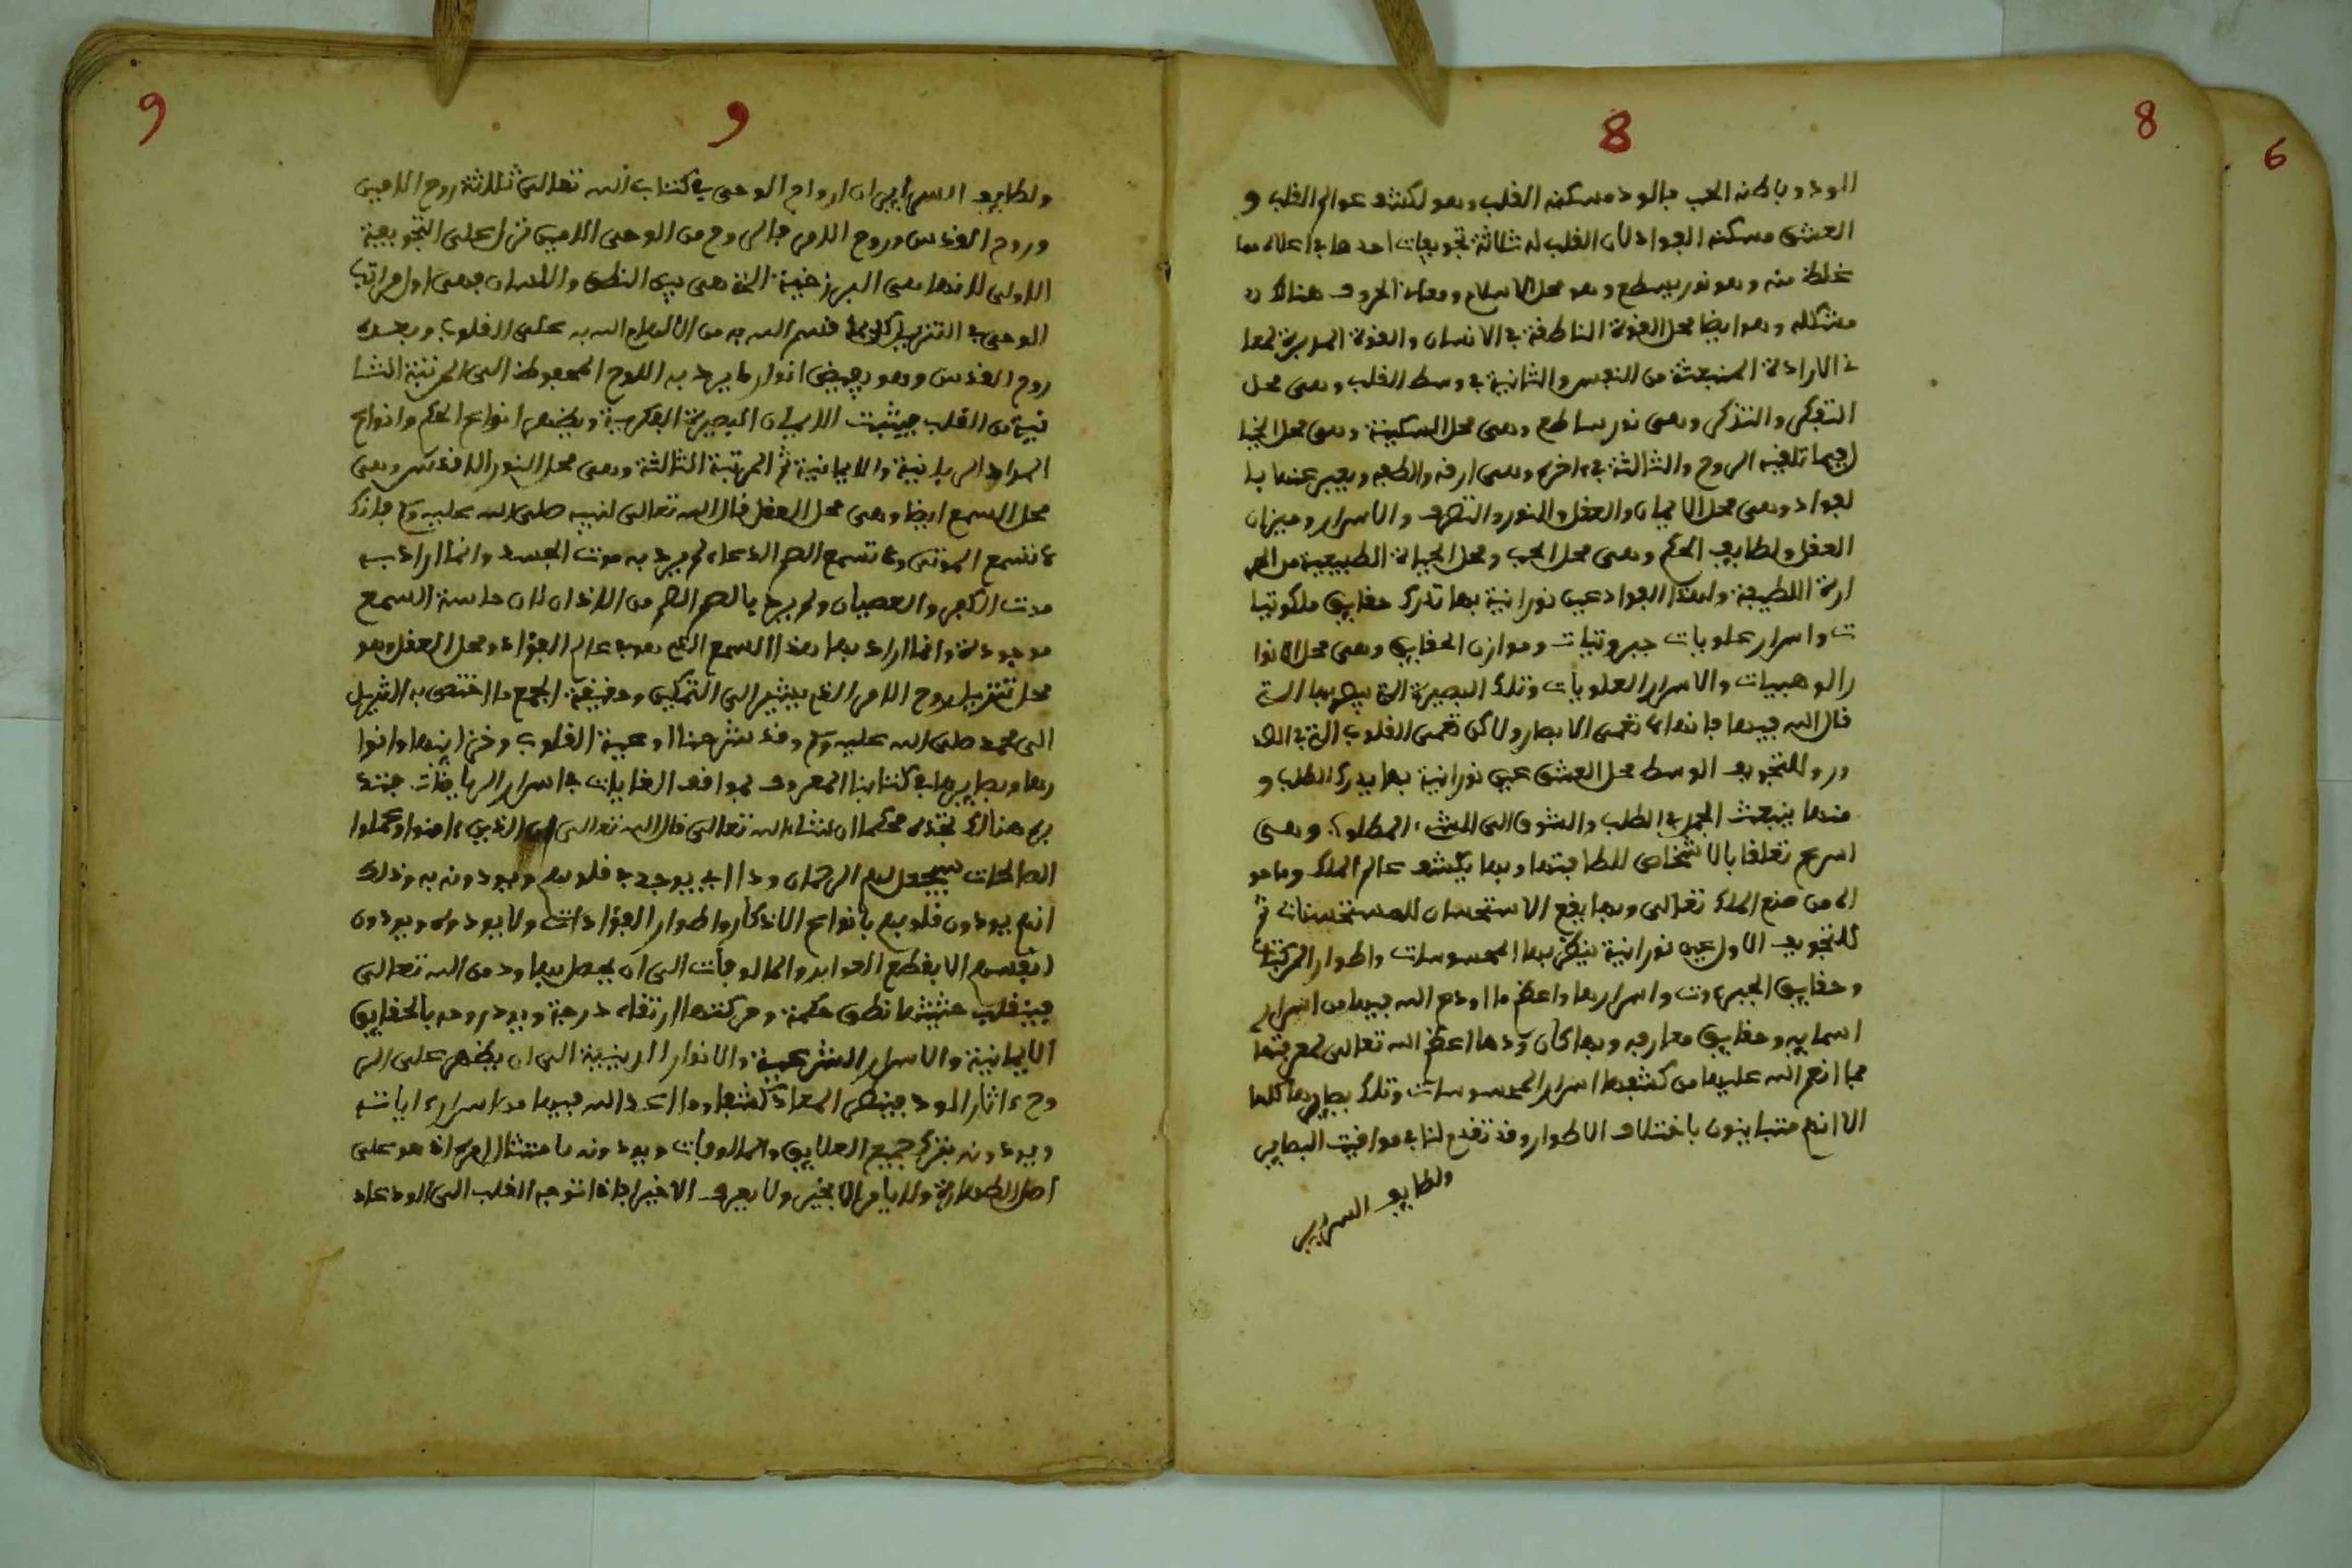 8
8
6
الودود باطنه الحب فالود مسكنه القلب وهو لكشف عوالم القلب و
العشق مسكنه الفواد لان القلب له ثلاثة تجويفات احدها في اعلاه مما
غلظ منه وهو نور يسطع وهو محل الاسلام ومعاني الحروف هنالك
مشكله وهو ايضا محل القوة الناطقة في الانسان والقوة المدبرة لمعا
ني الارادة المنبعثة من النفس والثانية في وسط القلب وهي محل
التفكر والتذكر وهي نور ساطع وهي محل السكينة وهي محل الخيا
ل فيما تلقيه الروح والثالثة في ءاخره وهي ارقه والطفه ويعبر عنها با
لفواد وهي محل الايمان والعقل والنور والتصرف والاسرار وميزان
العقل ولطايف الحكم وهي محل الحب ومحل الحياة الطبيعية من الحر
ارة اللطيفة ولهذا الفواد عين نورانية بها تدرك حقايق ملكوتيا
ت واسرار علويات جبروتيات وموازن الحقايق وهي محل الانوا
ر الوهبيات والاسرار العلويات وتلك البصيرة التي
قال الله فيها فانها لا تعمى الابصار ولاكن تعمى القلوب التي في الصد
ور وللتجويف الوسط محل العشق عين نورانية بها يدرك الطلب و
منها ينبعث الطلب والشوق الى المطلوب وهي
اسرع تعلقا بالاشخاص للطافيتها وبها يكشف عالم الملك وما هو
اله من صنع الملك تعالى وبها يقع الاستحسان للمستحسنات ثم
للتجويف الاول عين نورانية ينظر بها المحسوسات واطوار المركبات
وحقايق الجبروت واسرارها واعظم ما اودع الله فيها من اسرار
اسمايه وحقايق معارفه وبها كان ودها اعظم الله تعالى لمعرفتها
مما انعم الله عليها من كشفها اسرار المحسوسات وتلك بصايرها كلها
الا انهم متباينون باختلاف الاطوار وقد تقدم لنا في مواقيت البصاير
ولطايف السراير
9
9
ولطايف السراير ان ارواح الوحي في كتاب الله تعالى ثلاثة روح الامين
وروح القدس وروح الامر فالروح من الوحي الامين نزل على التجويفة
الاولى لانها هي البرزخية التي هي بين النطق واللسان وهي اول مراتب
الوحي في التنزيل قسم الله به من الالهام الله به على القلوب وبعده
روح القدس وهو يفيض انوار ما يرد به اللوح المحفوظ الى المرتبة الثا
نية من القلب فيثبت الايمان البصيرة الفكرية ويظهر انواع الحكم وانواع
المواد الربانية والايمانية ثم المرتبة الثالثة وهي محل النور الاقدس وهي
محل السمع ايضا وهي محل العقل قال الله تعالى لنبيه صلى الله عليه وسلم فانك
لا تسمع الموتى ولا تسمع الصم الدعاء لم يرد به موت الجسد وانما اراد به
موت الكفر والعصيان ولم يرد بالصم الصم من الاذان لان حاسة السمع
موجودة وانما اراد بها هذا السمع الذي هو في عالم الفؤاد ومحل العقل وهو
محل تنزيل روح الامر الذي يشير الى التمكين وحقيقة الجمع ما اختص به التنزيل
الى محمد صلى الله عليه وسلم وقد شرحنا اوعية القلوب وخزاينها وانوا
رها وبصايرها في كتابنا المعروف بمواقف الغايات في اسرار الرياضات فتد
بره هنالك تجده محكما ان شاء الله تعالى قال الله تعالى ان الذين ءامنوا وعملوا
الصالحات سيجعل لهم الرحمان ودا اي يوجد في قلوبهم ويودونه به وذلك
انهم يودون قلوبهم بانواع الاذكار واطوار الفؤادات ولا يودوه ويودون
انفسهم الا بقطع العوايد والمالوفات الى ان يحصل بها ود من الله تعالى
فينقلب حيثيتها نطق حكمة وحركتها ارتقاء درجة ويود روحه بالحقايق
الايمانية والاسرار الشرعية والانوار الدينية الى ان يظهر على الر
وح ءاثار الود فينظر المعاد كشفا وما اعد الله فيها من اسرار ءاياته
ويودونه بترك جميع العلايق والمالوفات ويودونه بامتثال امره اذ هو على
اصل الطهارة ولا يامر الا بخير ولا يعرف الا خيرا فاذا توجه القلب الى الود عاد